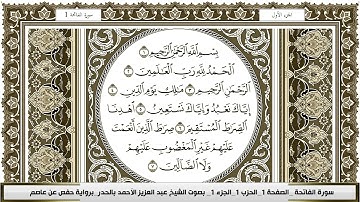 سورة الفاتحة 1
الجزء الأول
بِسْمِ اللَّهِ الرَّحْمَٰنِ الرَّحِيمِ ١
الْحَمْدُ لِلَّهِ رَبِّ الْعَالَمِينَ ٢
الرَّحْمَٰنِ الرَّحِيمِ ٣ مَالِكِ يَوْمِ الدِّينِ ٤
إِيَّاكَ نَعْبُدُ وَإِيَّاكَ نَسْتَعِينُ ٥ اهْدِنَا
الصِّرَاطَ الْمُسْتَقِيمَ ٦ صِرَاطَ الَّذِينَ أَنْعَمْتَ
عَلَيْهِمْ غَيْرِ الْمَغْضُوبِ عَلَيْهِمْ
وَلَا الضَّالِّينَ ٧
سورة الفاتحة _الصفحة 1_ الحزب 1_ الجزء 1_ بصوت الشيخ عبد العزيز الاحمد بالحدر_ برواية حفص عن عاصم